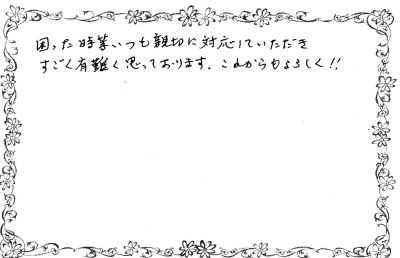 困った時等いつも親切に対応していただき
すごく有難く思っております。これからもよろしく!!